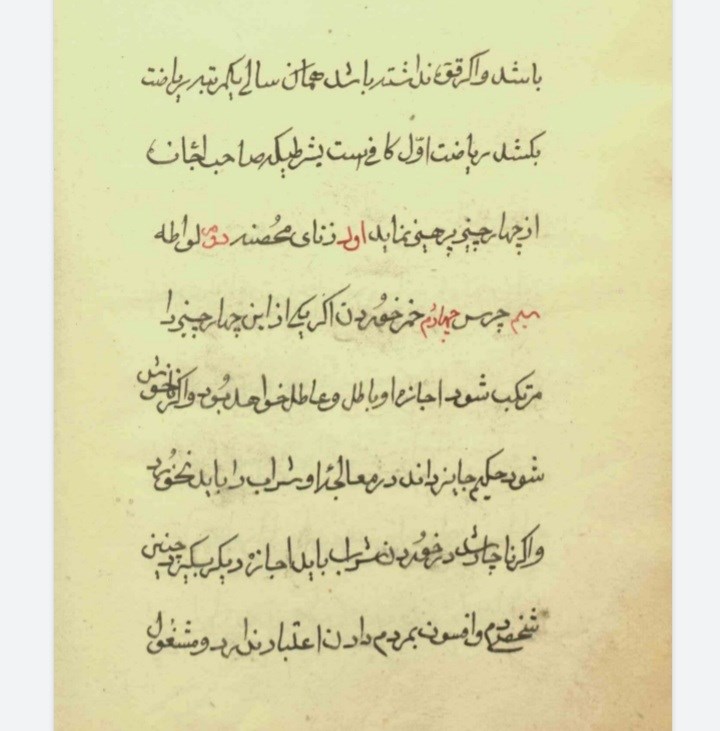 باشد و اکر قوّه نداشته باشد همان سالے یکمرتبه ریاضت
بکشد ریاضت اوّل کافیست بشرطیکه صاحب اجٔازه
از چهار چیز پرهیز نماید اول زنای مُحصنه دوم لواطه
سیم چرس چهارُم خمر خوُردن اکر یکے از این چهار چیز را
مرتکب شود اجازه او باطل و عاطل خواهد بوُد و اکر ناخوش
شود حکیم جایز داند در معالجٔه او شراب را باید نخوُرد
و اکر ناچار شد در خوُردن شراب باید اجازه دیکر بکیرد چنین
شخص دم و افسون بمردم دادن اعتبار ندارد و مشغوُل